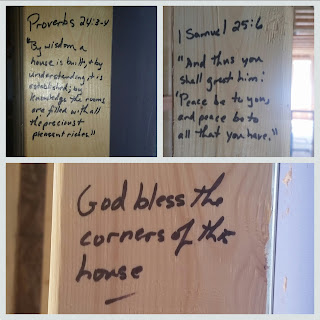 Proverbs 24:3-4
"By wisdom a
house is built, & by
understanding it is
established; by
knowledge the rooms
are filled with all
the precious &
pleasant riches."
1 Samuel 25:6
"And thus you
shall greet him:
'Peace be to you,
and peace be to
all that you have."
God bless the
corners of this
house